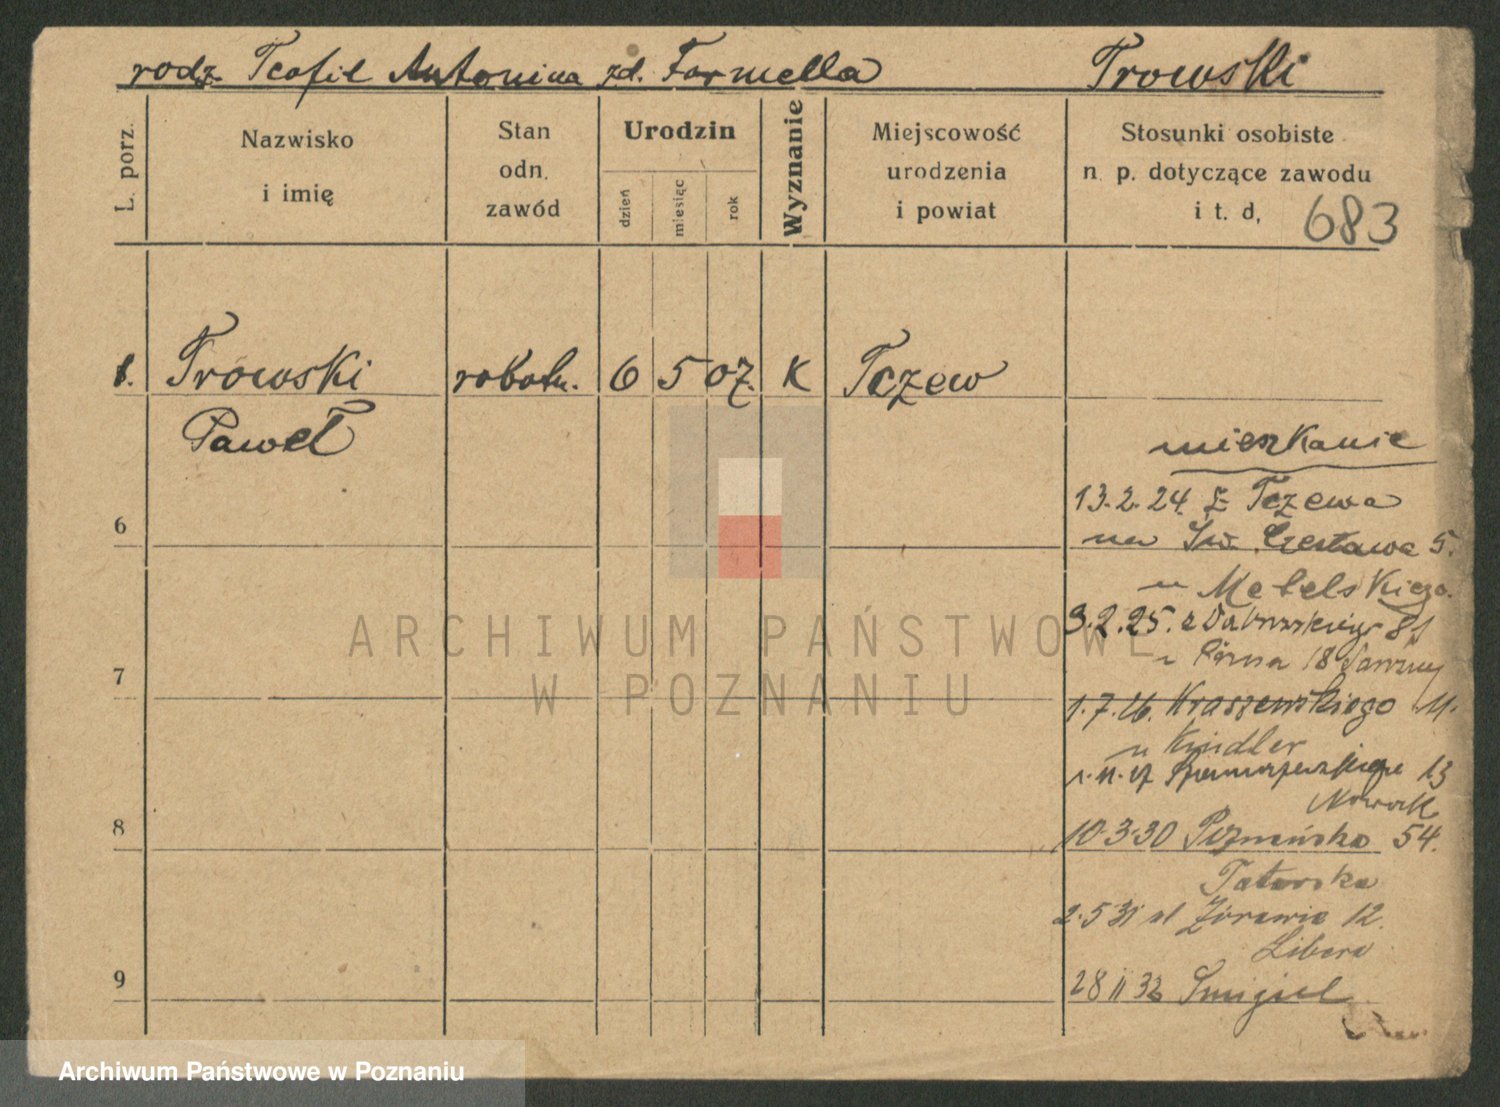 rodz. Teofil Antonina zd. Formella Trowski
L. porz. Nazwisko i imię Stan odn. zawód Urodzin dzień miesiąc rok Wyznanie Miejscowość urodzenia i powiat Stosunki osobiste n. p. dotyczące zawodu i t. d.
683
1. Trowski robotn. 6 5 07. K Tczew
Paweł
mieszkanie
13.2.24. z Tczewa
6
na Św. Czesława 5.
u Mebelskiego.
3.2.25. z Dąbrowskiego 81
18
7
1.7.26. Kraszewskiego 11.
u Kindler
13
Nowak
8
10.3.30 Poznańska 54.
Tatarska
2.5 31 Żórawia 12.
Libera
9
28 II 32 Śmigiel
ARCHIWUM PAŃSTWOWE
W POZNANIU
Archiwum Państwowe w Poznaniu